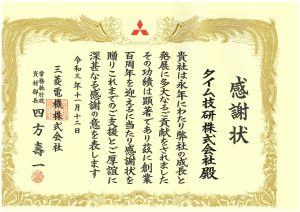 感謝状
タイム技研株式会社殿
貴社は永年にわたり弊社の成長と
発展に多大なるご貢献をされました
その功績は顕著であり茲に創業
百周年を迎えるに当たり感謝状を
贈りこれまでのご支援とご厚誼に
深甚なる感謝の意を表します
令和三年十一月十二日
三菱電機株式会社
常務執行役
資材部長
四方壽一